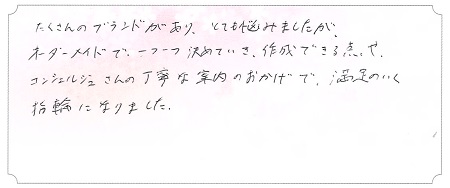 たくさんのブランドがあり、とても悩みましたが、
オーダーメイドで、一つ一つ決めていき、作成できる点や、
コンシェルジュさんの丁寧な案内のおかげで、満足のいく
指輪になりました。